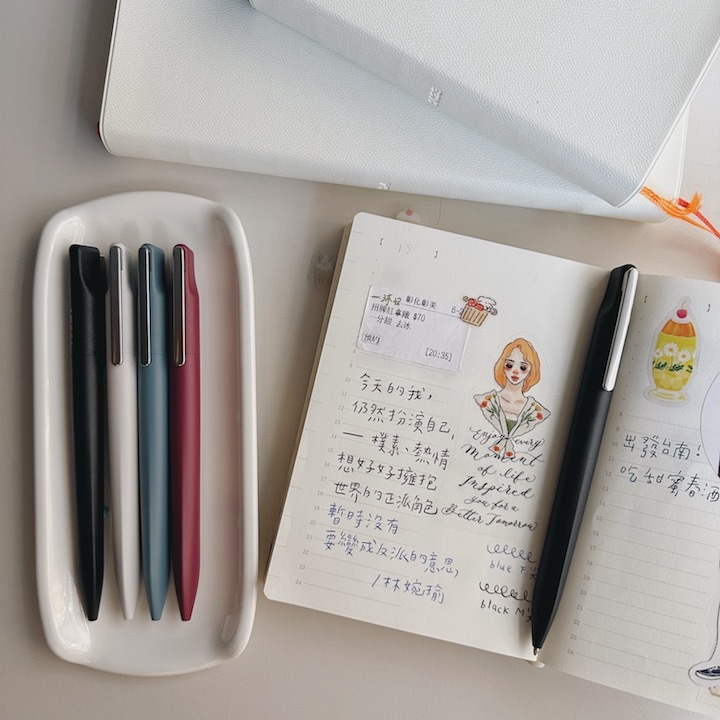 [ 15 ]
一沐日 彰化彰美
柑檸紅拿鐵 $70
一分甜 去冰
預約
[20:35]
今天的我,
仍然扮演自己,
— 樸素、熱情
想好好擁抱
世界的正派角色
暫時沒有
要變成反派的意思,
/林婉瑜
Enjoy every
Moment
of life
Inspired
you for a
Better Tomorrow
blue
black
出發台南!
吃甜蜜春酒